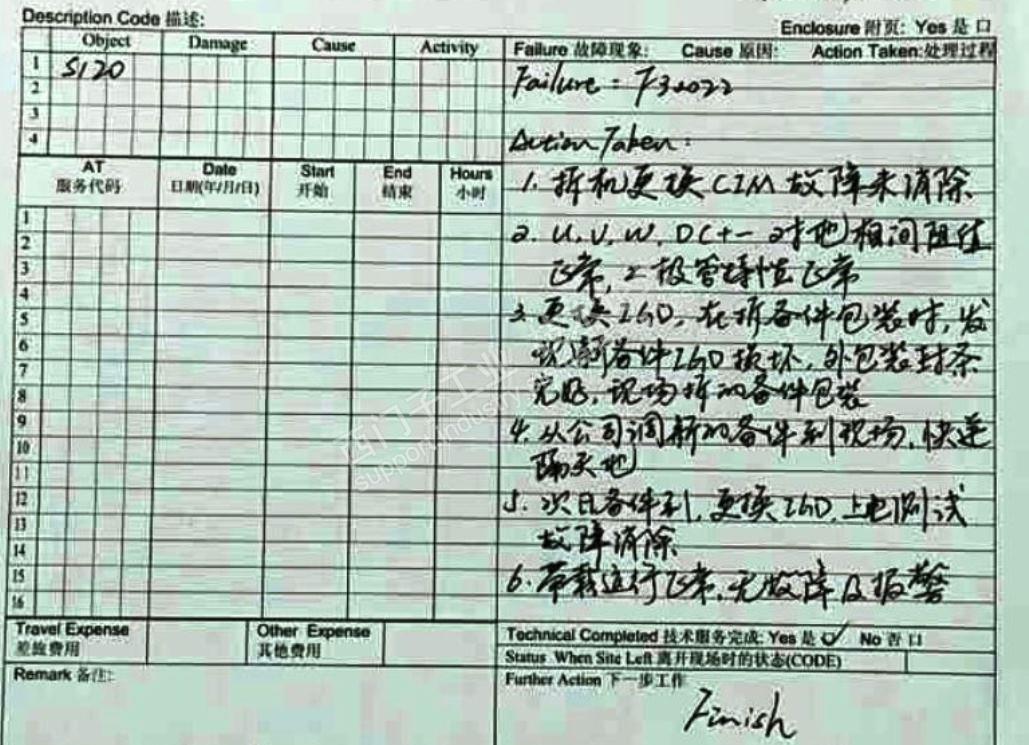 Description Code 描述:
Enclosure 附页: Yes 是 口
Object Damage Cause Activity
Failure 故障现象: Cause 原因: Action Taken:处理过程
1 S120
2
3
4
Failure: F30022
Action Taken:
AT 服务代码
Date 日期(年/月/日)
Start 开始
End 结束
Hours 小时
1
2
3
4
5
6
7
8
9
10
11
12
13
14
15
16
1. 拆机更换CIM故障未消除
2. U, V, W, DC+- 对地相间阻值
正常, 2极管特性正常
3. 更换IGD, 在拆备件包装时, 发
现新备件IGD损坏, 外包装封条
完好, 现场拆的备件包装
4. 从公司调新的备件到现场, 快递
隔天地
5. 次日备件到, 更换IGD, 上电测试
故障消除
6. 带载运行正常, 无故障及报警
西门子工业
support.industry
Travel Expense
差旅费用
Other Expense
其他费用
Technical Completed 技术服务完成: Yes 是 口 No 否 口
Status When Site Left 离开现场时的状态(CODE)
Remark 备注:
Further Action 下一步工作
Finish